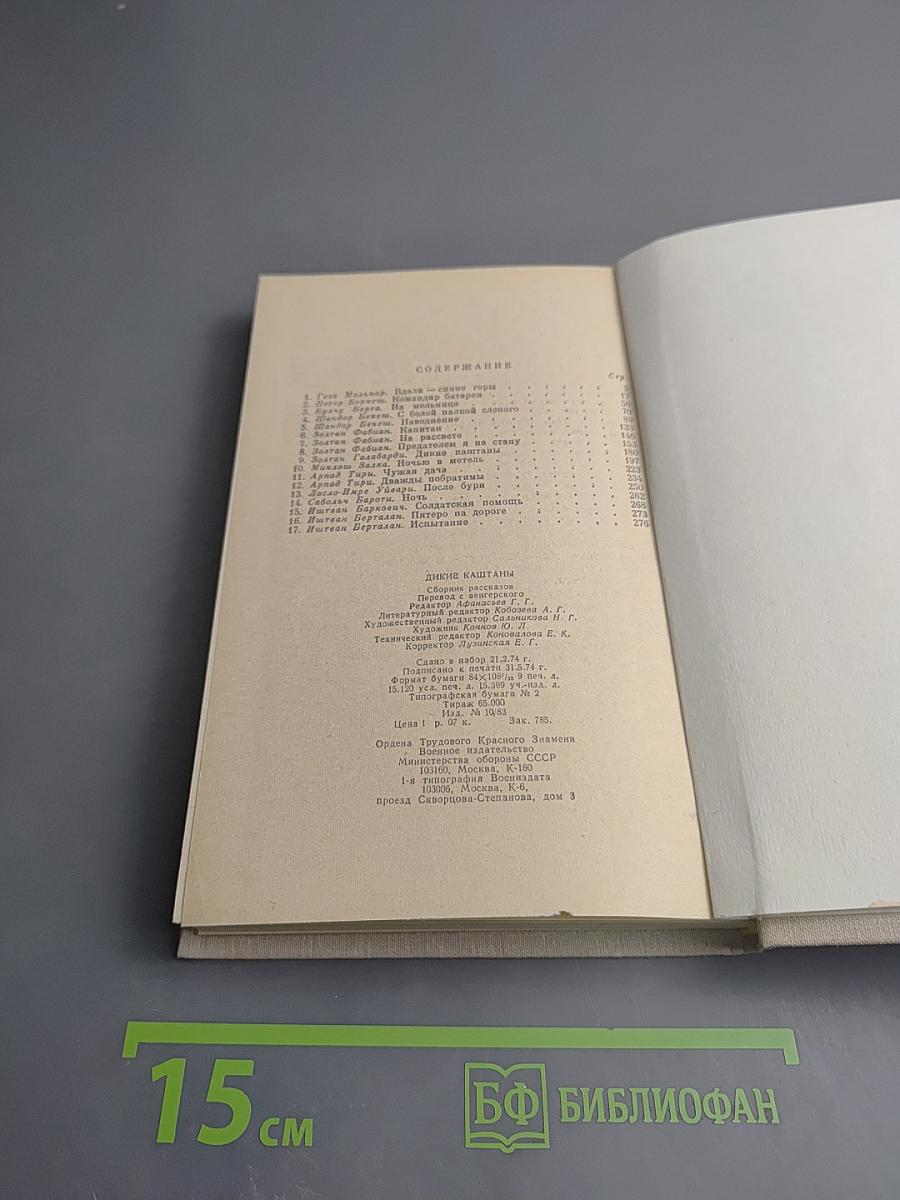 СОДЕРЖАНИЕ
Стр.
1. Геза Мольнар. Вдали — синие горы . . . . . . . 5
2. Петер Беркеш. Командир батареи . . . . . . . 17
3. Булчу Берта. На мельнице . . . . . . . 56
4. Шандор Бекеш. С белой палкой слепого . . . . . . 70
5. Шандор Бекеш. Наводнение . . . . . . . 89
6. Золтан Фабиан. Капитан . . . . . . . 133
7. Золтан Фабиан. На рассвете . . . . . . . 146
8. Золтан Фабиан. Предателем я не стану . . . . . . 153
9. Золтан Галабарди. Дикие каштаны . . . . . . . 180
10. Миклош Залка. Ночью в метель . . . . . . . 197
11. Арпад Тири. Чужая дача . . . . . . . 223
12. Арпад Тири. Дважды побратимы . . . . . . . 234
13. Ласло-Имре Уйвари. После бури . . . . . . . 250
14. Сабольч Бароти. Ночь . . . . . . . 262
15. Иштван Баркович. Солдатская помощь . . . . . . 268
16. Иштван Берталан. Пятеро на дороге . . . . . . 273
17. Иштван Берталан. Испытание . . . . . . . 276
ДИКИЕ КАШТАНЫ
Сборник рассказов
Перевод с венгерского
Редактор Афанасьев Г. Г.
Литературный редактор Кобозева А. Г.
Художественный редактор Сальникова Н. Г.
Художник Коннов Ю. Л.
Технический редактор Коновалова Е. К.
Корректор Лузинская Е. Г.
Сдано в набор 21.2.74 г.
Подписано к печати 31.5.74 г.
Формат бумаги 84×108¹/₃₂ 9 печ. л.
15.120 усл. печ. л. 15.369 уч.-изд. л.
Типографская бумага № 2
Тираж 65.000
Изд. № 10/83
Цена 1 р. 07 к. Зак. 785.
Ордена Трудового Красного Знамени
Военное издательство
Министерства обороны СССР
103160, Москва, К-160
1-я типография Воениздата
103006, Москва, К-6,
проезд Скворцова-Степанова, дом 3
15 см
БФ БИБЛИОФАН